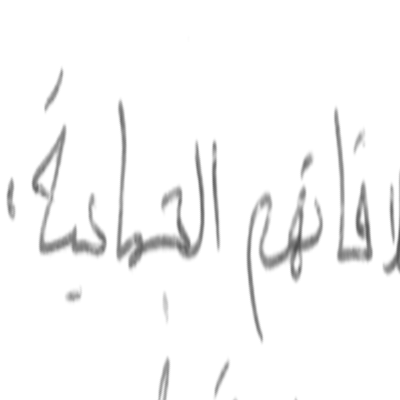 لاقاتهم الجماعية.